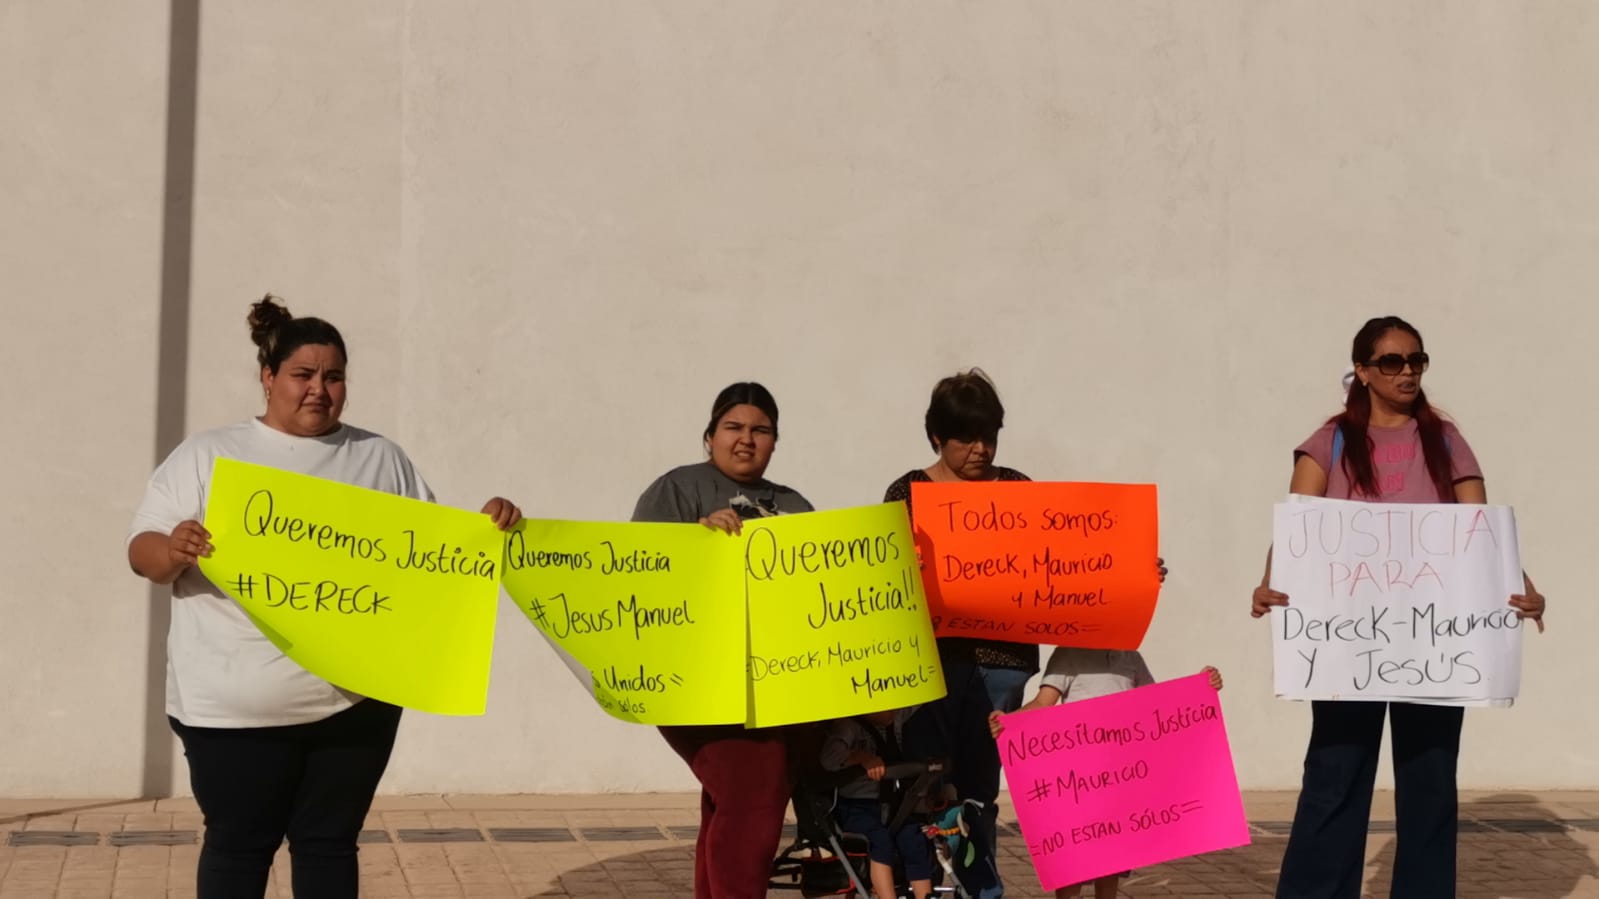 Queremos Justicia
#DERECK
Queremos Justicia
#Jesus Manuel
Unidos =
sólos.
Queremos
Justicia!!
=Dereck, Mauricio y
Manuel=
Todos somos:
Dereck, Mauricio
y Manuel
ESTAN SOLOS=
Necesitamos Justicia
#MAURICIO
=NO ESTAN SÓLOS=
JUSTICIA
PARA
Dereck-Mauricio
Y JESÚS.